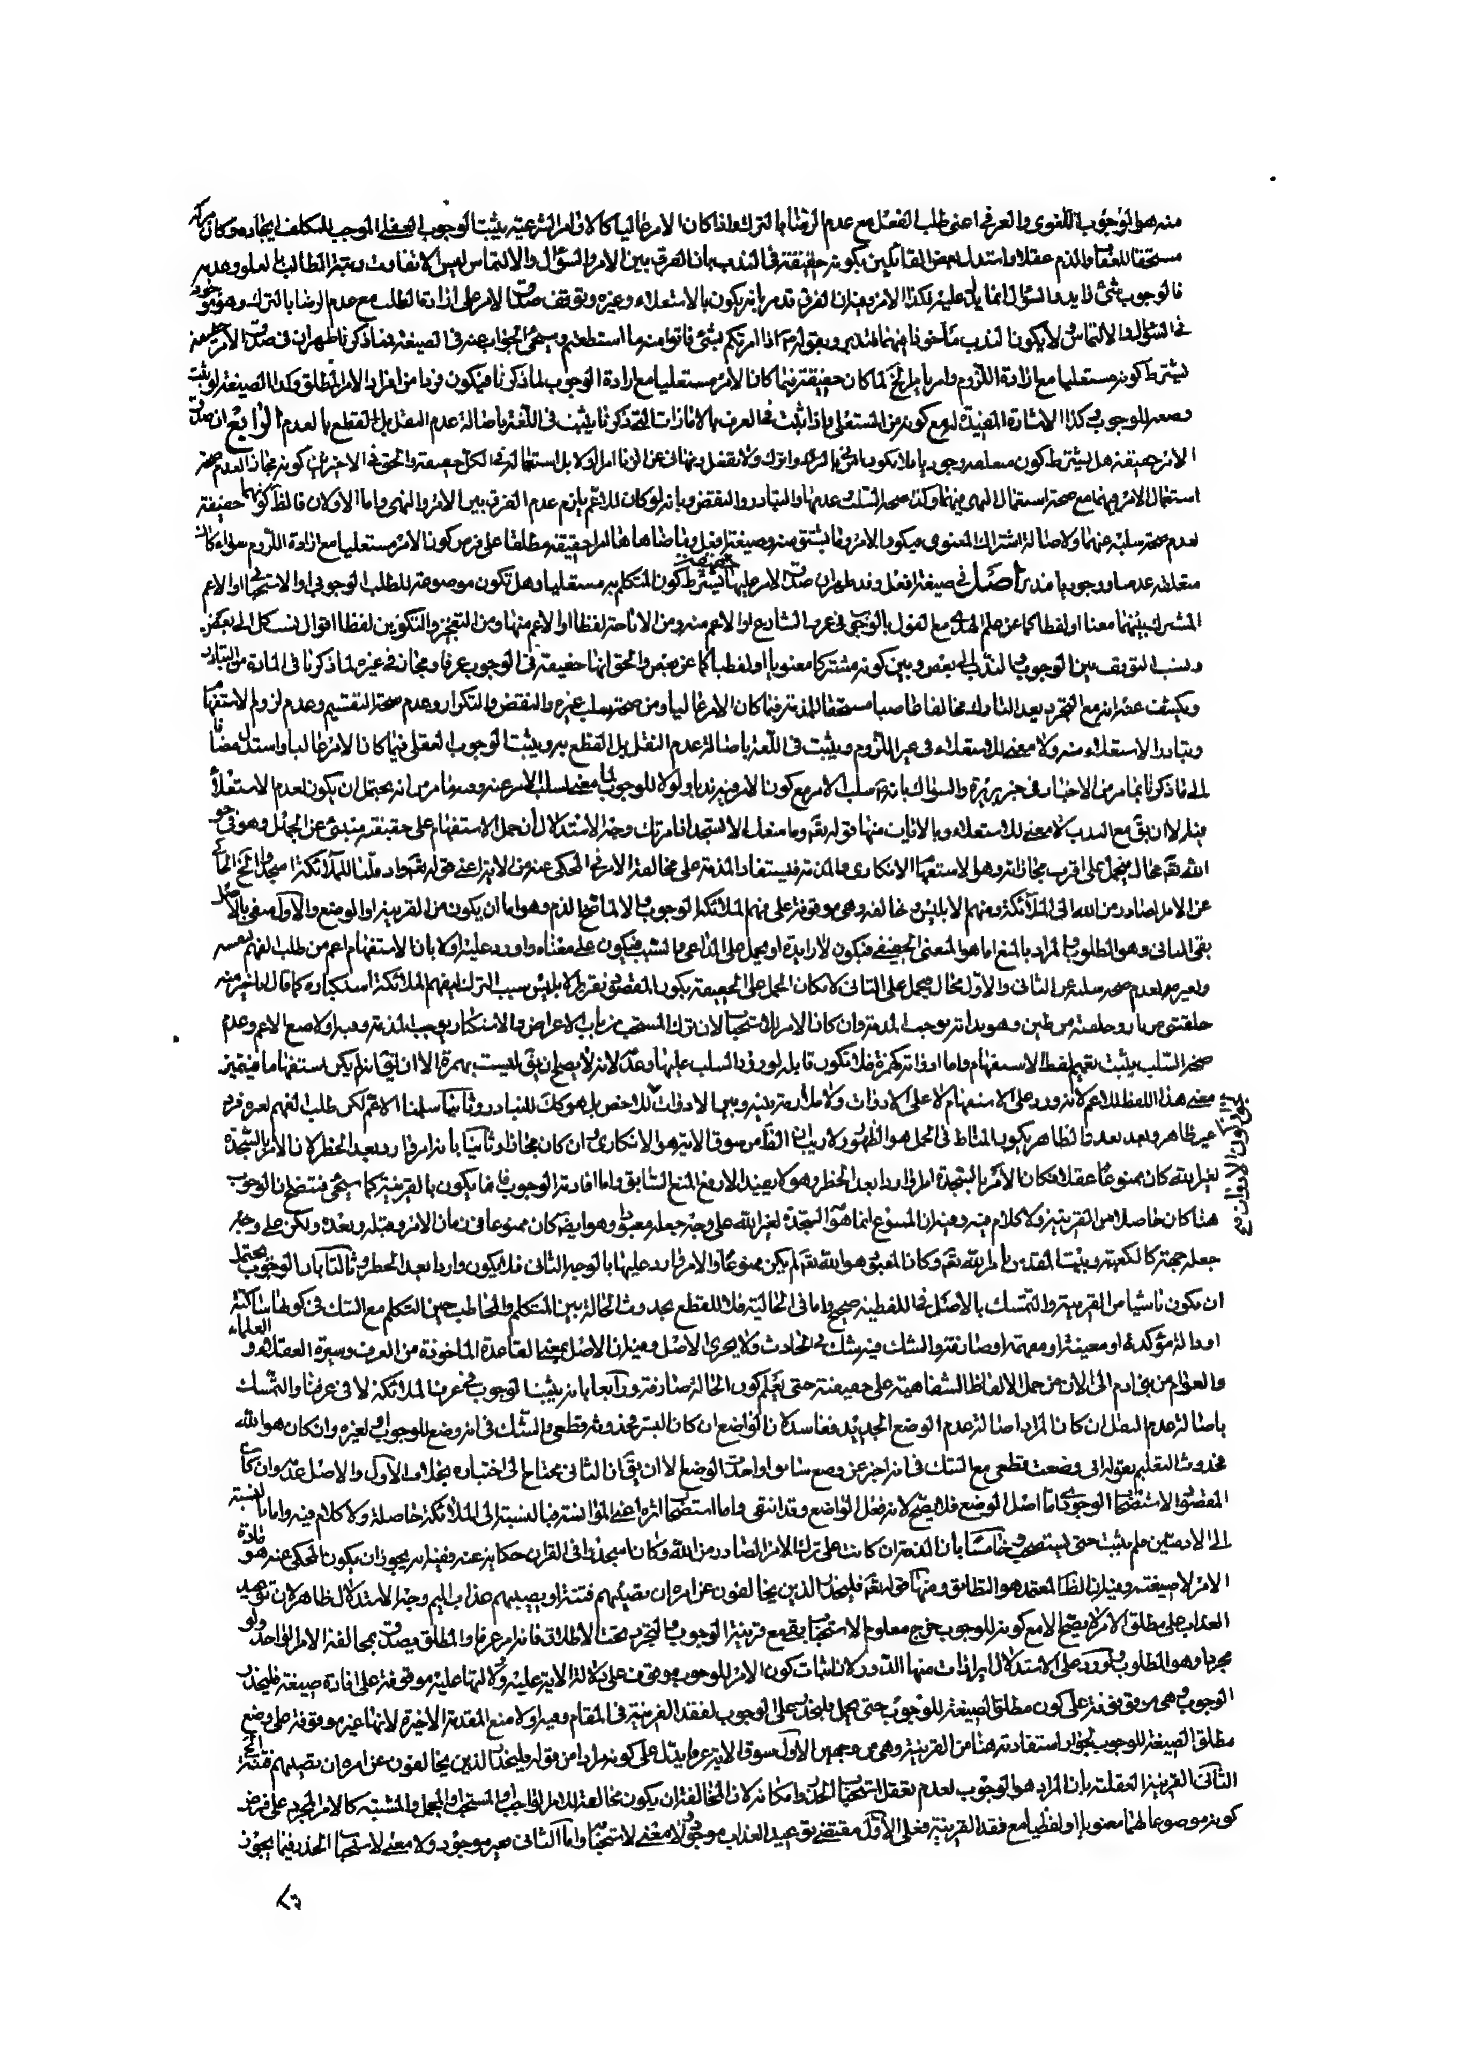 منه هو الوجوب اللغوى والعرفى اعنى طلب الفعل مع عدم الرضا بالترك واذا كان الامر عاليا كالاوامر الشرعية يثبت الوجوب العقلى الموجب للمكلف ايجاده وكان تركه
مستحقا للعقاب والذم عقلا واستدل بعض القائلين بكونه حقيقة فى الندب بان الفرق بين الامر والسؤال والالتماس ليس الا تفاوت رتبة الطالب بالعلو وعدمه
فالوجوب شئ زايد والسؤال انما يدل عليه فكذا الامر وفيه ان الفرق قد مر بانه يكون بالاستعلاء وغيره وتوقف صدق الامر على ارادة الطلب مع عدم الرضا بالترك وهو
فى السؤال والالتماس لا يكون الندب مأخوذا فيهما وبقوله اذا امرتكم بشئ فاتوا منه ما استطعتم وسيجئ الجواب عنه فى الصيغة فما ذكرنا ظهر ان فى صدق الامر حقيقة
يشترط كونه مستعليا مع ارادة اللزوم وامر بل لما كان حقيقة فيما كان الامر مستعليا مع ارادة الوجوب لما ذكرنا فيكون فردا من افراد الامر المطلق وكذا الصيغة لو ثبت
وضعه للوجوب وكذا الاشارة المفيدة له مع كونه من المستعلى واذا ثبت فى العرف بالامارات التى ذكرنا يثبت فى اللغة باصالة عدم النقل بل القطع بالعدم الرابع ان صدق
الامر حقيقة هل يشترط كون متعلقه وجوديا فلا يكون امر بالترك ولا تفعل ونهانى عن الزنا امرا او لا بل استعماله فى الكل حقيقة والحق فى الاخير كونه مجازا لعدم صحة
استعمال الامر فيهما مع صحة استعمال النهى فيهما وكذا صحة السلب وعدمها والتبادر والنقض وبانه لو كان للاعم يلزم عدم الفرق بين الامر والنهى واما الاولان فالظ كونهما حقيقة
لعدم صحة سلبه عنهما ولاصالة اشتراك المعنوى ويكون الامر وما يشتق منه وصيغة افعل وما ضاهاها امرا حقيقة مطلقا على فرض كون الامر مستعليا مع ارادة اللزوم سواء كان
متعلقه عدميا او وجوديا فتدبر اصل فى صيغة افعل وقد ظهر ان صدق الامر عليها حقيقة يشترط كون المتكلم به مستعليا وهل تكون موضوعة للطلب الوجوبى او الاستحبابى او الاعم
المشترك بينهما معنا او لفظا كما عن علم الهدى مع القول بالوجوب فى عرف الشارع او الاعم منه ومن الاباحة لفظا او الاعم منها ومن التهديد والتكوين لفظا اقوال نسب كل الى بعض
ونسب التوقف بين الوجوب والندب الى بعض وبين كونه مشتركا معنويا او لفظيا كما عن بعض والحق انها حقيقة فى الوجوب عرفا ومجاز فى غيره لما ذكرنا فى المادة من التبادر
ويكشف عنه انه مع التجرد يعد التارك مخالفا عاصيا مستحقا للمذمة فيما كان الامر عاليا ومن صحة سلب غيره والنقض والتكرار وعدم صحة التقسيم وعدم لزوم الاستفهام
وتبادر الاستعلاء منه ولا معنى للاستعلاء فى غير اللزوم ويثبت فى اللغة باصالة عدم النقل بل القطع به ويثبت الوجوب العقلى فيما كان الامر عاليا واستدل مضافا
الى ما ذكرنا بما مر من الاخبار فى خبر بريرة والسواك بانه سلب الامر مع كون الامر فيه ندبا ولو لا للوجوب لما معنى لسلب الامر عنه وفيه ما مر من انه يحتمل ان يكون لعدم الاستعلاء
فيها الا ان يق مع الندب لا معنى للاستعلاء وبالايات منها قوله تعه وما منعك الا تسجد اذ امرتك وجه الاستدلال ان حمل الاستفهام على حقيقته منبئ عن الجهل وهو فى حق
الله تعه محال فيحمل على اقرب مجازاته وهو الاستفهام الانكارى والمذمة فيستفاد المذمة على مخالفة الامر فى المحكى عنه من الاية اعنى قوله تعه واذ قلنا للملائكة اسجدوا الخ الحاكى
عن الامر الصادر من الله الى الملائكة ومنهم الابليس وخالفه وهى موقوفة على فهم الملائكة الوجوب والا لما صح الذم وهو اما ان يكون من القرينة او الوضع والاول منفى بالاصل
بقى الثانى وهو المطلوب والمراد بالمنع اما هو المعنى الحقيقى فيكون لا زايدة او يحمل على الداعى والسبب فيكون على معناه واورد عليه اولا بان الاستفهام اعم من طلب الفهم لنفسه
ولغيره لعدم صحة سلبه عن الثانى والاول محال فيحمل على الثانى لامكان الحمل على الحقيقة فيكون المقصود تقرير الابليس سبب الترك ليفهم الملائكة استكباره كما قال انا خير منه
خلقتنى من نار وخلقته من طين وهو بذاته يوجب المذمة وان كان الامر للاستحباب لان ترك المستحب من باب الاعراض والاستنكار يوجب المذمة وفيه اولا منع الاعم وعدم
صحة السلب يثبت تعميم لفظ الاستفهام واما ادواته كهمزة فلا تكون قابلة لورود السلب عليها وعدمه لانه لا يصح ان يق ليست بهمزة الا ان يق انه لم يكن مستفهما ما فيتميز
معنى هذا اللفظ للاعم لانه ورد على الاستفهام لا على الادوات ولا ملازمة بينه وبين الادوات لذلك اخص بل هو كذلك للتبادر وثانيا سلمنا الاعم لكن طلب الفهم لغيره فرد
غير ظاهر وبعد تعذر الظاهر يكون المناط فى الحمل هو الظهور ولا ريب ان الظ من سوق الاية هو الانكارى وان كان مجازا وثانيا بانه امر وارد بعد الحظر لان الامر بالسجدة
لغير الله كان ممنوعا عقلا فكان الامر بالسجدة امرا واردا بعد الحظر وهو لا يفيد الا رفع المنع السابق واما افادته الوجوب فانما يكون بالقرينة كما سيجئ فنتضح ان الوجوب
هنا كان حاصلا من القرينة ولا كلام فيه وفيه ان الممنوع انما هو السجدة لغير الله على وجه جعله معبودا وهو ايضا كان ممنوعا فى زمان الامر وقبله وبعده ولكن على وجه
جعله جهة كالكعبة وبيت المقدس بامر الله تعه وكان المعبود هو الله تعه لم يكن ممنوعا والامر وارد عليها بالوجه الثانى فلا يكون واردا بعد الحظر وثالثا بان الوجوب يحتمل
ان يكون ناشيا من القرينة والتمسك بالاصل فى اللفظية صحيح واما فى الحالية فلا للقطع بحدوث الحالة بين المتكلم والمخاطب حين التكلم مع الشك فى كونها ساكتة
او دالة مؤكدة او معينة او معممة او صارفة والشك فيه شك فى الحادث ولا يجرى الاصل وفيه ان الاصل بمعنى القاعدة الماخوذة من العرف وسيرة العقلاء والعلماء
والعوام من بنى ادم الى الان من حمل الالفاظ الشفاهية على حقيقته حتى يعلم كون الحالة صارفة ورابعا بانه يثبت الوجوب فى عرف الملائكة لا فى عرفنا والتمسك
باصالة عدم النقل ان كان المراد اصالة عدم الوضع الجديد ففاسد لان الواضع ان كان البشر فحدوثه قطعى والشك فى انه وضع للوجوب او لغيره وان كان هو الله
فحدوث التعليم بقوله انى وضعت قطعى مع الشك فى انه اخبر عن وضع سابق او احدث الوضع الا ان يق ان الثانى محتاج الى اختباره بخلاف الاول والاصل عدمه وان كان
المقصود الاستصحاب الوجودى كما اصل الوضع فلا يصح لانه فعل الواضع وقد انتفى واما استصحاب اثره اعنى المؤانسة فبالنسبة الى الملائكة حاصلة ولا كلام فيه واما بالنسبة
الى الادميين فلم يثبت حتى يستصحب وخامسا بان المذمة ان كانت على ترك الامر الصادر من الله وكان اسجدوا فى القران حكاية عنه وفيه انه يجوز ان يكون المحكى عنه هو مادة
الامر لا صيغته وفيه ان الظ المعتمد هو التطابق ومنها قوله تعه فليحذر الذين يخالفون عن امره ان تصيبهم فتنة او يصيبهم عذاب اليم وجه الاستدلال ظاهر لان توعيد
العذاب على مطلق الامر لا يصح الا مع كونه للوجوب خرج معلوم الاستحباب بقى مع قرينة الوجوب والتجرد تحت الاطلاق فانه امر عرفا والمطلق يصدق بمخالفة الامر الواحد ولو
مجردا وهو المطلوب واورد على الاستدلال ايرادات منها الدور لان اثبات كون الامر للوجوب موقوف على دلالة الاية عليه ودلالتها عليه موقوفة على افادة صيغة فليحذر
الوجوب وهى موقوفة على كون مطلق الصيغة للوجوب حتى يحمل فليحذر على الوجوب لفقد القرينة فى المقام وفيه اولا منع المقدمة الاخيرة لانها غير موقوفة على وضع
مطلق الصيغة للوجوب لجواز استفادته هنا من القرينة وهى من وجهين الاول سوق الاية عرفا يدل على كونه مرادا من قوله فليحذر الذين يخالفون عن امره ان تصيبهم فتنة الخ
الثانى القرينة العقلية بان المراد هو الوجوب لعدم تعقل استحباب الحذر وامكانه لان المخالفة اما ان يكون مخالفة للامر الواجب او المستحب او المجمل والمشتبه كالامر المجرد على فرض
كونه موضوعا لهما معنويا او لفظيا مع فقد القرينة فعلى الاول مقتضى توعيد العذاب موجود ولا معنى لاستحبابه واما الثانى غير موجود ولا معنى لاستحباب الحذر فيما يجوز